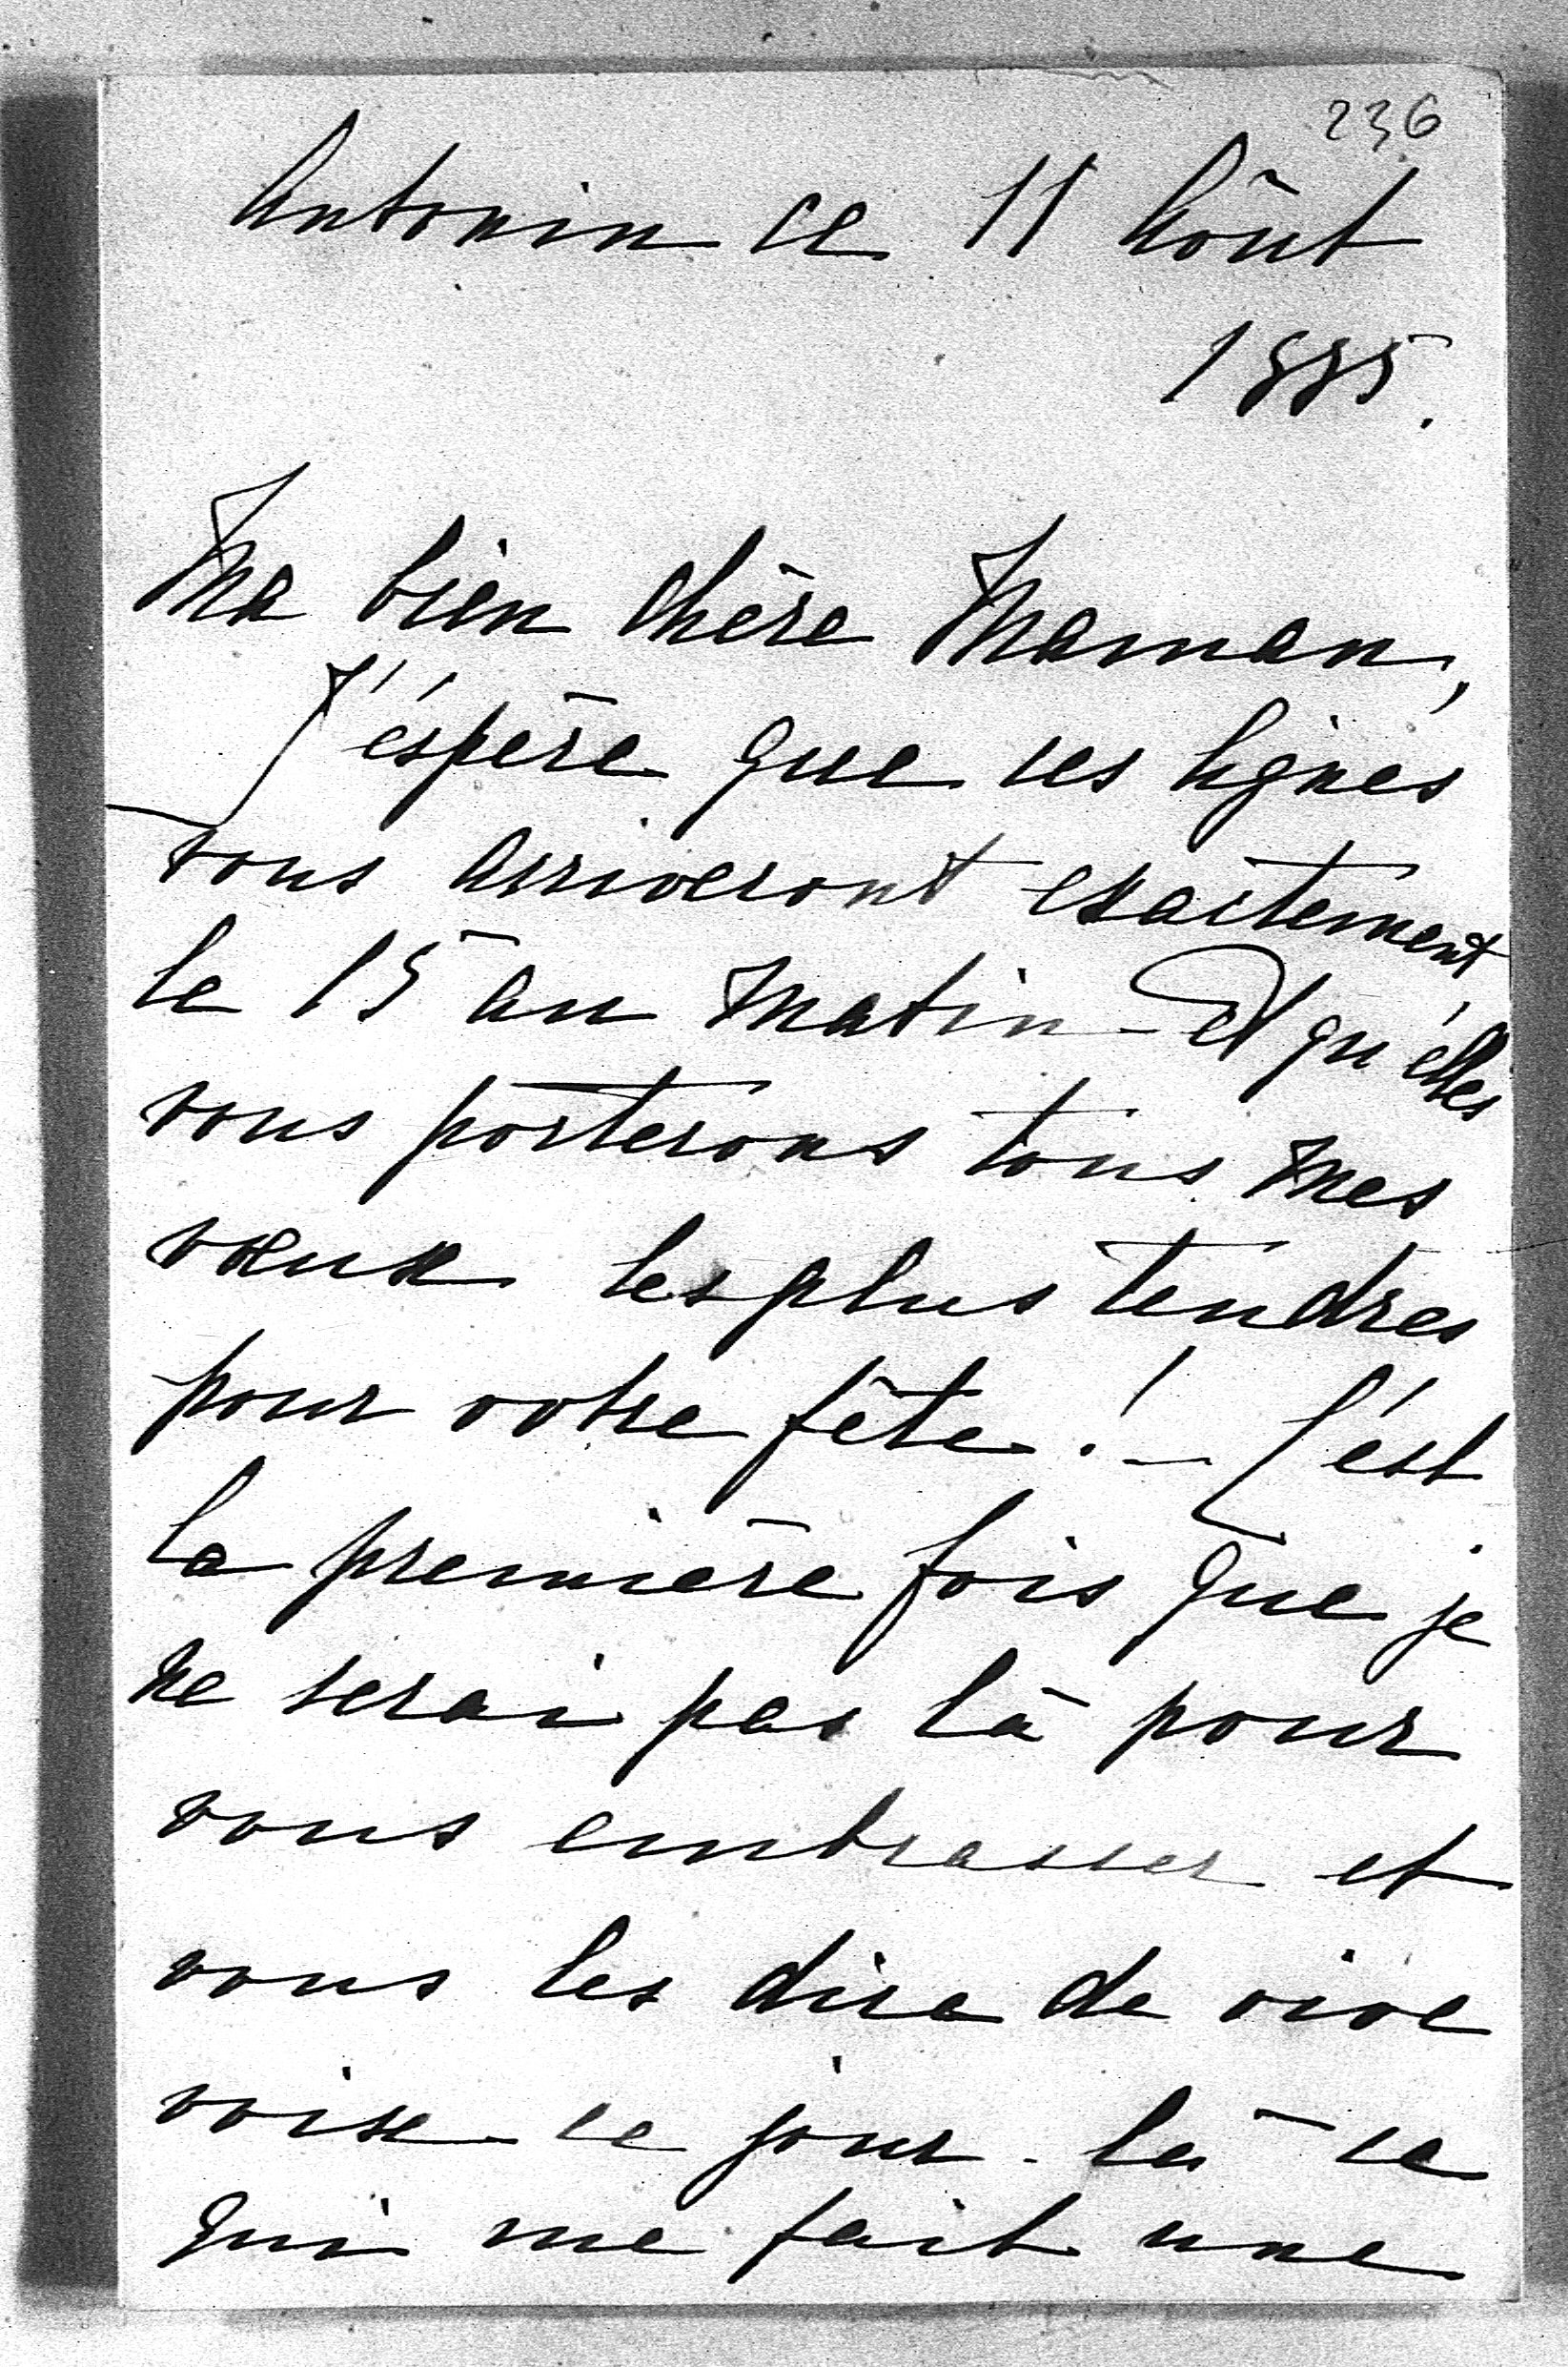 236
Antonin ce 11 Août
1885.
Ma bien chère Maman,
J'éspère que ces lignes
vous arriveront exactement
le 15 au matin - et qu'elles
vous porterons tous mes
vœux les plus tendres
pour votre fête ! - C'est
la première fois que je
ne serai pas là pour
vous embrasser et
vous les dire de vive
voise ce jour-là ce
qui me fait une